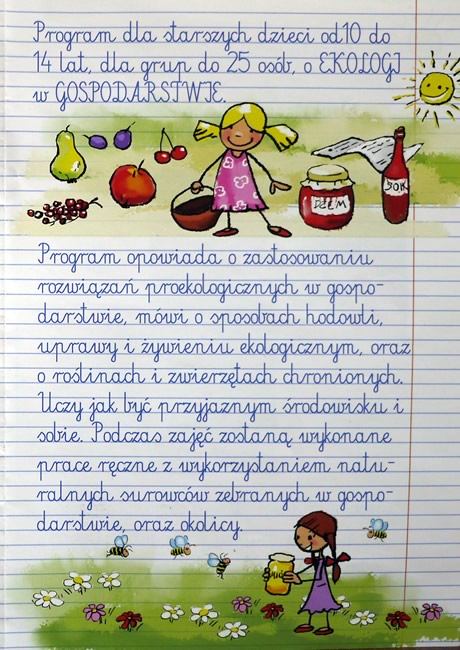 Program dla starszych dzieci od 10 do
14 lat, dla grup do 25 osób, o EKOLOGI
w GOSPODARSTWIE.
SOK
DŻEM
Program opowiada o zastosowaniu
rozwiązań proekologicznych w gospo-
darstwie, mówi o sposobach hodowli,
uprawy i żywieniu ekologicznym, oraz
o roślinach i zwierzętach chronionych.
Uczy jak być przyjaznym środowisku i
sobie. Podczas zajęć zostaną wykonane
prace ręczne z wykorzystaniem natu-
ralnych surowców zebranych w gospo-
darstwie, oraz okolicy.
MIÓD